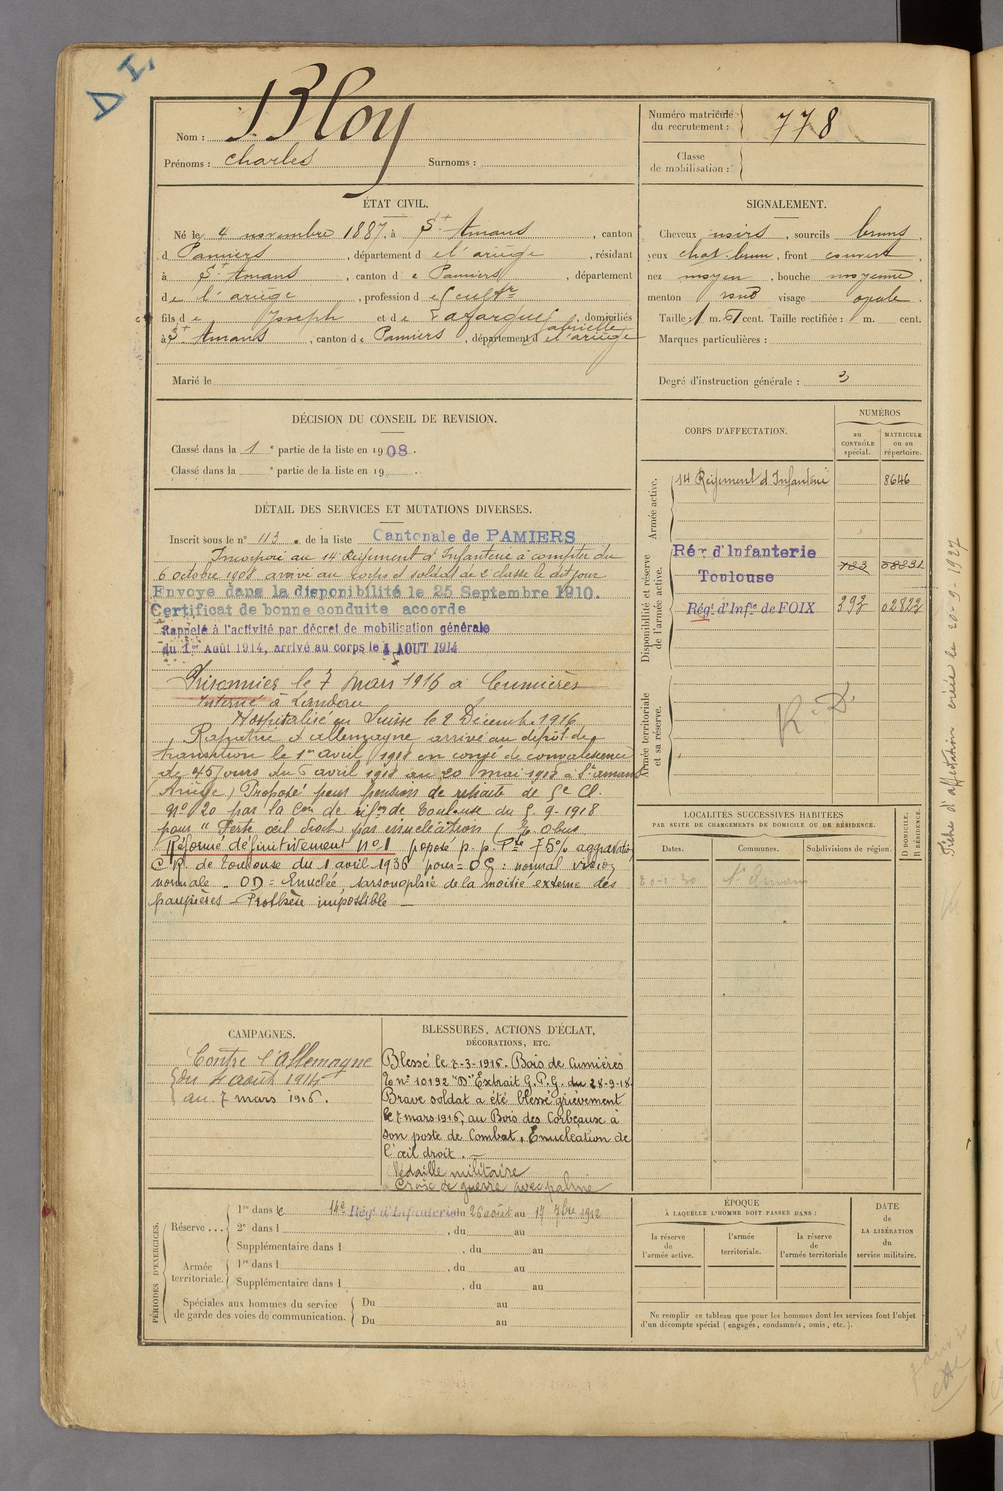 Nom : Bloy
Prénoms : Charles Surnoms :
Numéro matricule du recrutement : 778
Classe de mobilisation :
ÉTAT CIVIL.
Né le 4 novembre 1887, à St Amans, canton
d Pamiers, département de l'ariège, résidant
à St Amans, canton de Pamiers, département
de l'ariège, profession de cultr
fils de Joseph et de Lafargue Gabrielle, domiciliés
à St Amans, canton de Pamiers, département de l'ariège
Marié le
SIGNALEMENT.
Cheveux noirs, sourcils bruns,
yeux chat. brun, front couvert,
nez moyen, bouche moyenne
menton rond visage ovale.
Taille : 1 m. 61 cent. Taille rectifiée : m. cent.
Marques particulières :
Degré d'instruction générale : 3
DÉCISION DU CONSEIL DE REVISION.
Classé dans la 1e partie de la liste en 1908.
Classé dans la e partie de la liste en 19 .
DÉTAIL DES SERVICES ET MUTATIONS DIVERSES.
Inscrit sous le n° 113. de la liste Cantonale de PAMIERS
Incorporé au 14e Régiment d'Infanterie à compter du
6 octobre 1908 arrivé au corps et soldat de 2e classe le dit jour
Envoyé dans la disponibilité le 25 Septembre 1910.
Certificat de bonne conduite accordé
Rappelé à l'activité par décret de mobilisation générale
du 1er Août 1914, arrivé au corps le 4 AOUT 1914
Prisonnier le 7 Mars 1916 à Cumières
Interné à Landau
Hospitalisé en Suisse le 2 Décembre 1916
Rapatrié d'Allemagne arrivé au dépôt de
transition le 1er avril 1918 en congé de convalescence
de 45 jours du 6 avril 1918 au 20 mai 1918 à St amans
(Ariège) Proposé pour pension de retraite de 5e Cl.
No 20 par la Con de réfme de Toulouse du 5-9-1918
pour "Perte œil droit par énucléation (E. Obus
Réformé définitivement No 1 proposé p. p. Pte 75%
C.R. de Toulouse du 1 avril 1936 pour = OG : normal vision
normale - OD = Enucléé, tarsorraphie de la moitié externe des
paupières - Prothèse impossible -
CORPS D'AFFECTATION.
NUMÉROS
au CONTRÔLE spécial.
MATRICULE ou au répertoire.
Armée active.
14 Régiment d'Infanterie 8646
Disponibilité et réserve de l'armée active.
Rég. d'Infanterie
Toulouse
Régt. d'Infie de FOIX 393 02822
Armée territoriale et sa réserve.
R.D.
LOCALITÉS SUCCESSIVES HABITÉES
PAR SUITE DE CHANGEMENTS DE DOMICILE OU DE RÉSIDENCE.
Dates. Communes. Subdivisions de région. D DOMICILE. R RÉSIDENCE.
St Amans
Fiche d'affectation créée le 20-9-1927
CAMPAGNES.
Contre l'Allemagne
du 4 août 1914
au 7 mars 1916.
BLESSURES, ACTIONS D'ÉCLAT,
DÉCORATIONS, ETC.
Blessé le 7-3-1916. Bois de Cumières
no 10192 "D" Extrait G.Q.G. du 28-9-18
Brave soldat a été blessé grièvement
le 7 mars 1916, au Bois des Corbeaux à
son poste de Combat, Enucléation de
l'œil droit. -
Médaille militaire
Croix de guerre avec palme
PÉRIODES D'EXERCICES.
Réserve ... 1re dans le 14e Régt. d'Infanterie du 26 août au 17 7bre 1912
2e dans l , du au
Supplémentaire dans l , du au
Armée territoriale. 1re dans l , du au
Supplémentaire dans l , du au
Spéciales aux hommes du service de garde des voies de communication. Du au
Du au
ÉPOQUE
À LAQUELLE L'HOMME DOIT PASSER DANS :
la réserve de l'armée active.
l'armée territoriale.
la réserve de l'armée territoriale
DATE DE LA LIBÉRATION du service militaire.
Ne remplir ce tableau que pour les hommes dont les services font l'objet
d'un décompte spécial (engagés, condamnés, omis, etc.).